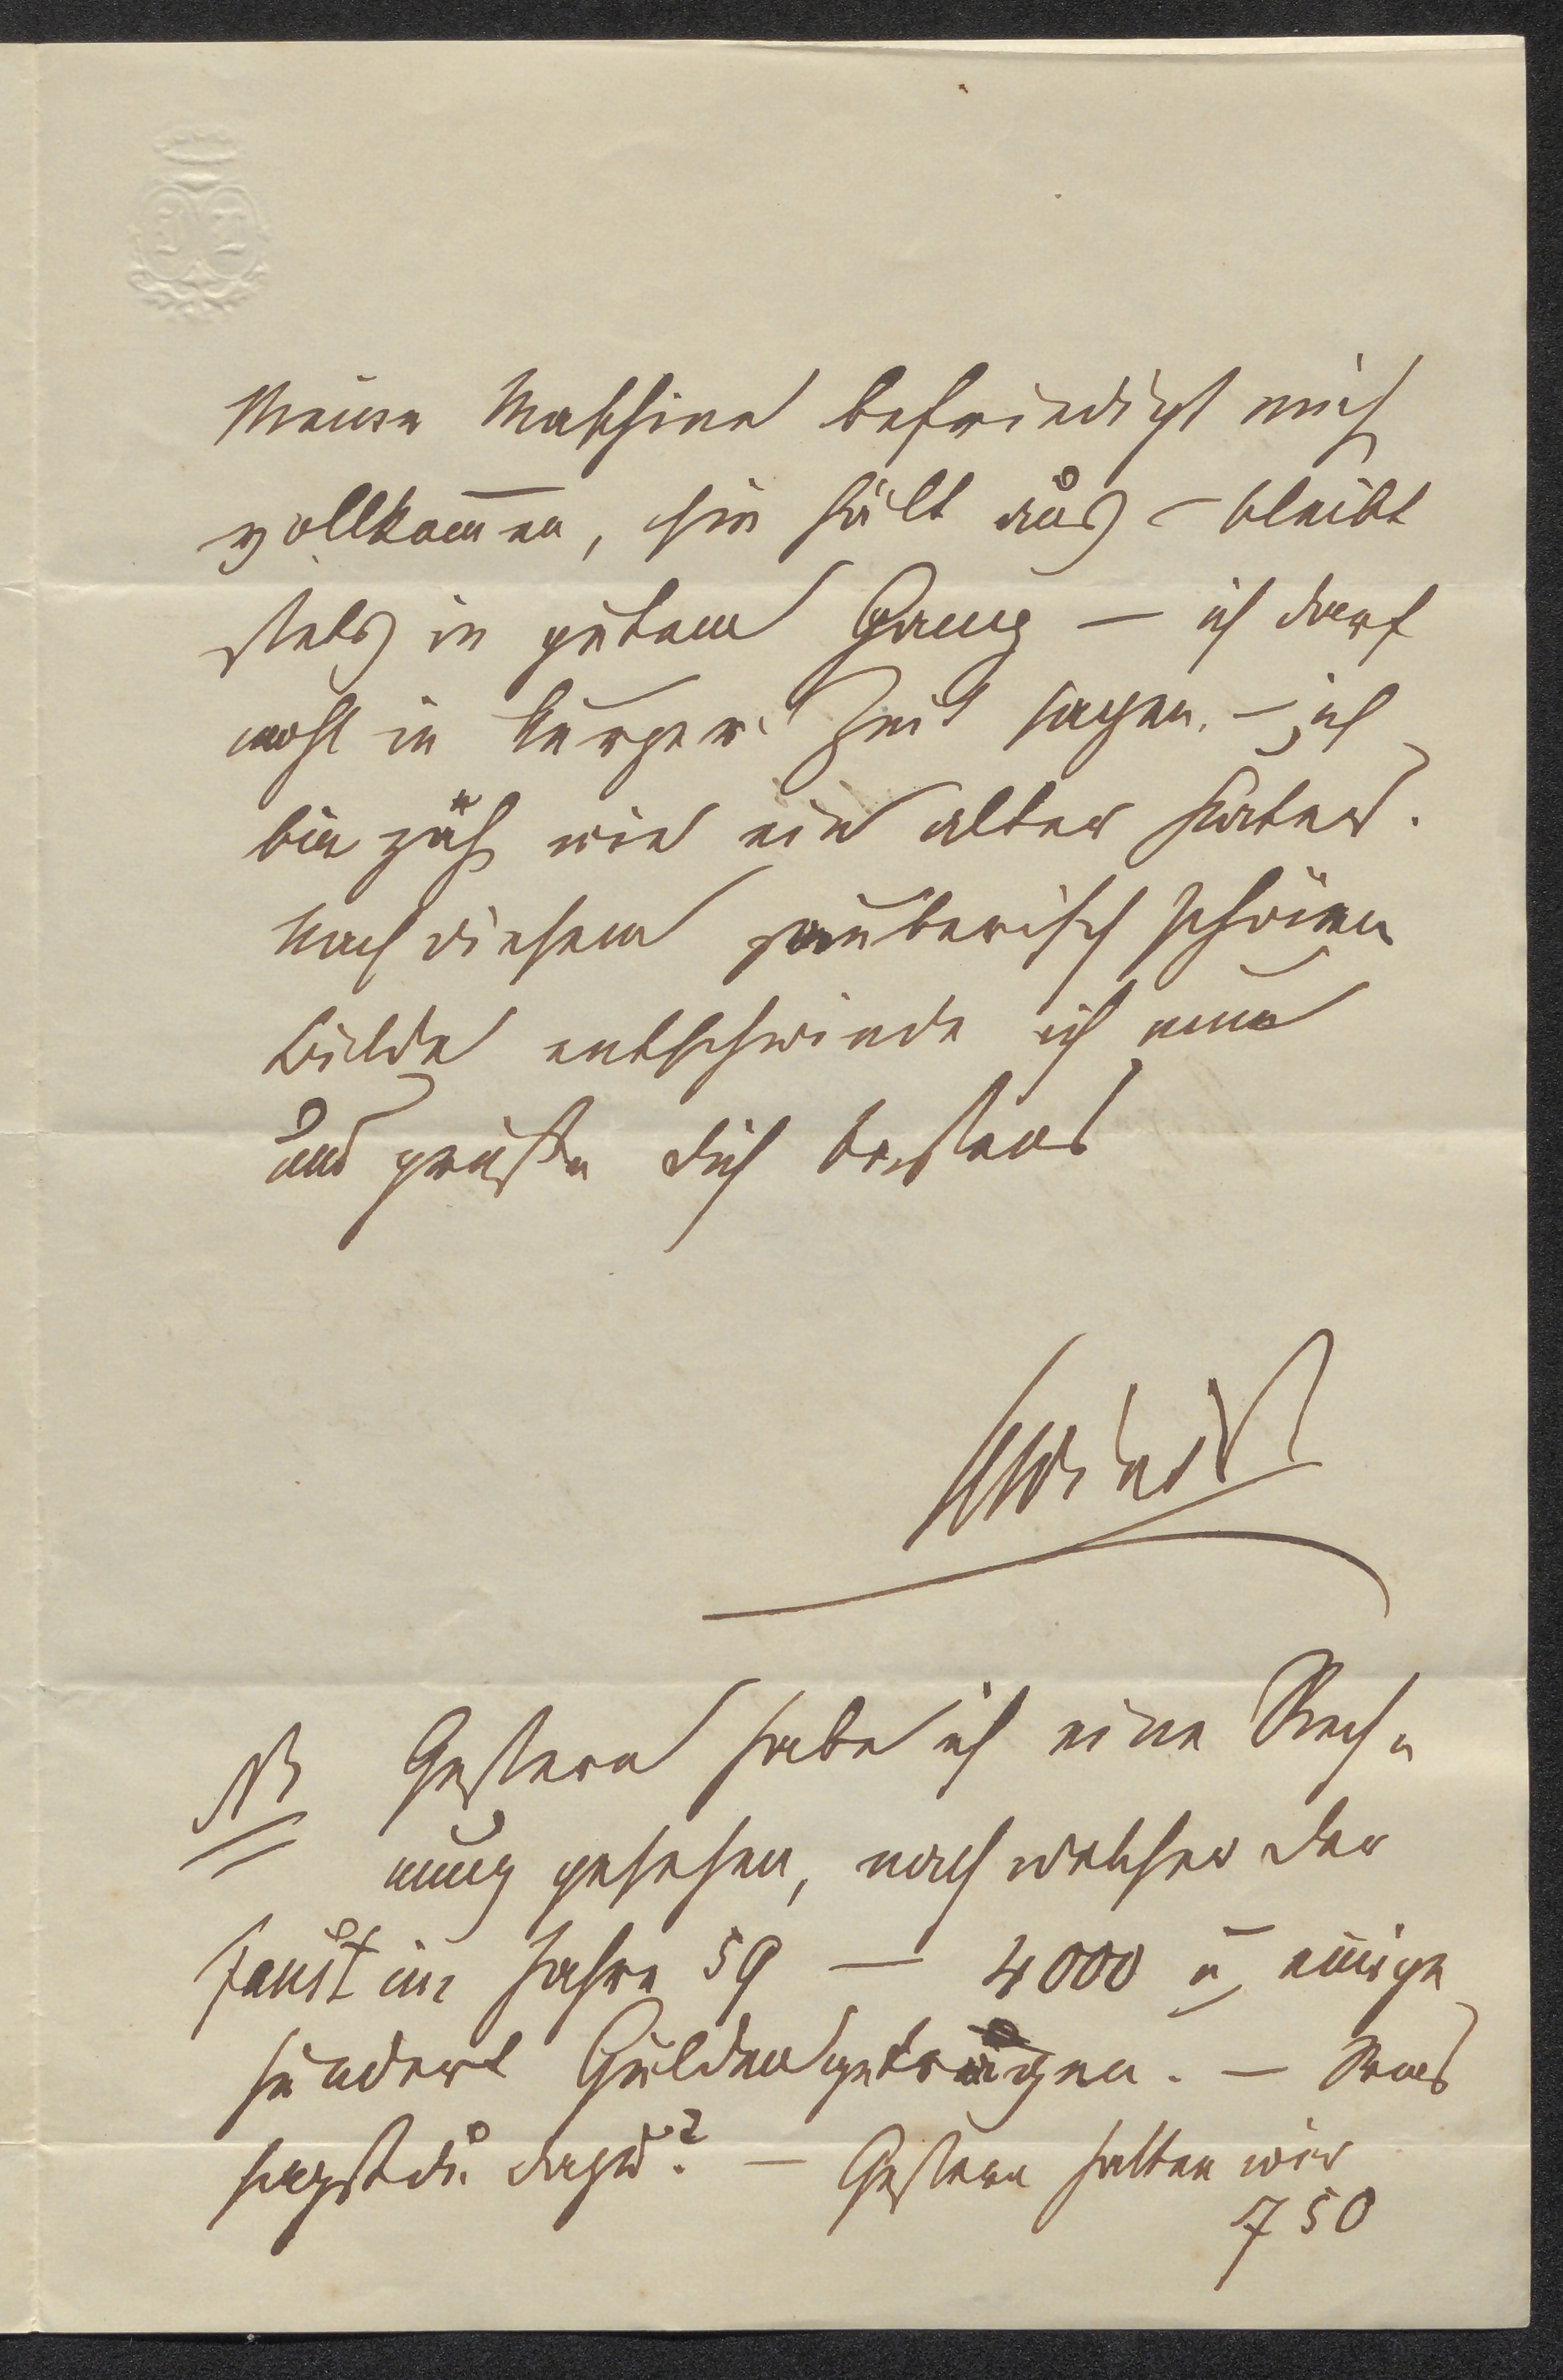 Meine Maschine befriedigt mich
vollkom̅en, sie hält aus – bleibt
stets in gutem Gang – ich darf
wohl in kurzer Zeit sagen. – ich
bin zäh wie ein alter Kater.
Nach diesem zauberisch schönen
Bilde entschwinde ich nun
und grüße dich bestens
NB Gestern habe ich eine Rech-
nung gesehen, nach welcher der
Faust im Jahre 59 — 4000 u einige
hundert Gulden getragen. – Was
sagst du dazu? – Gestern hatten wir
750